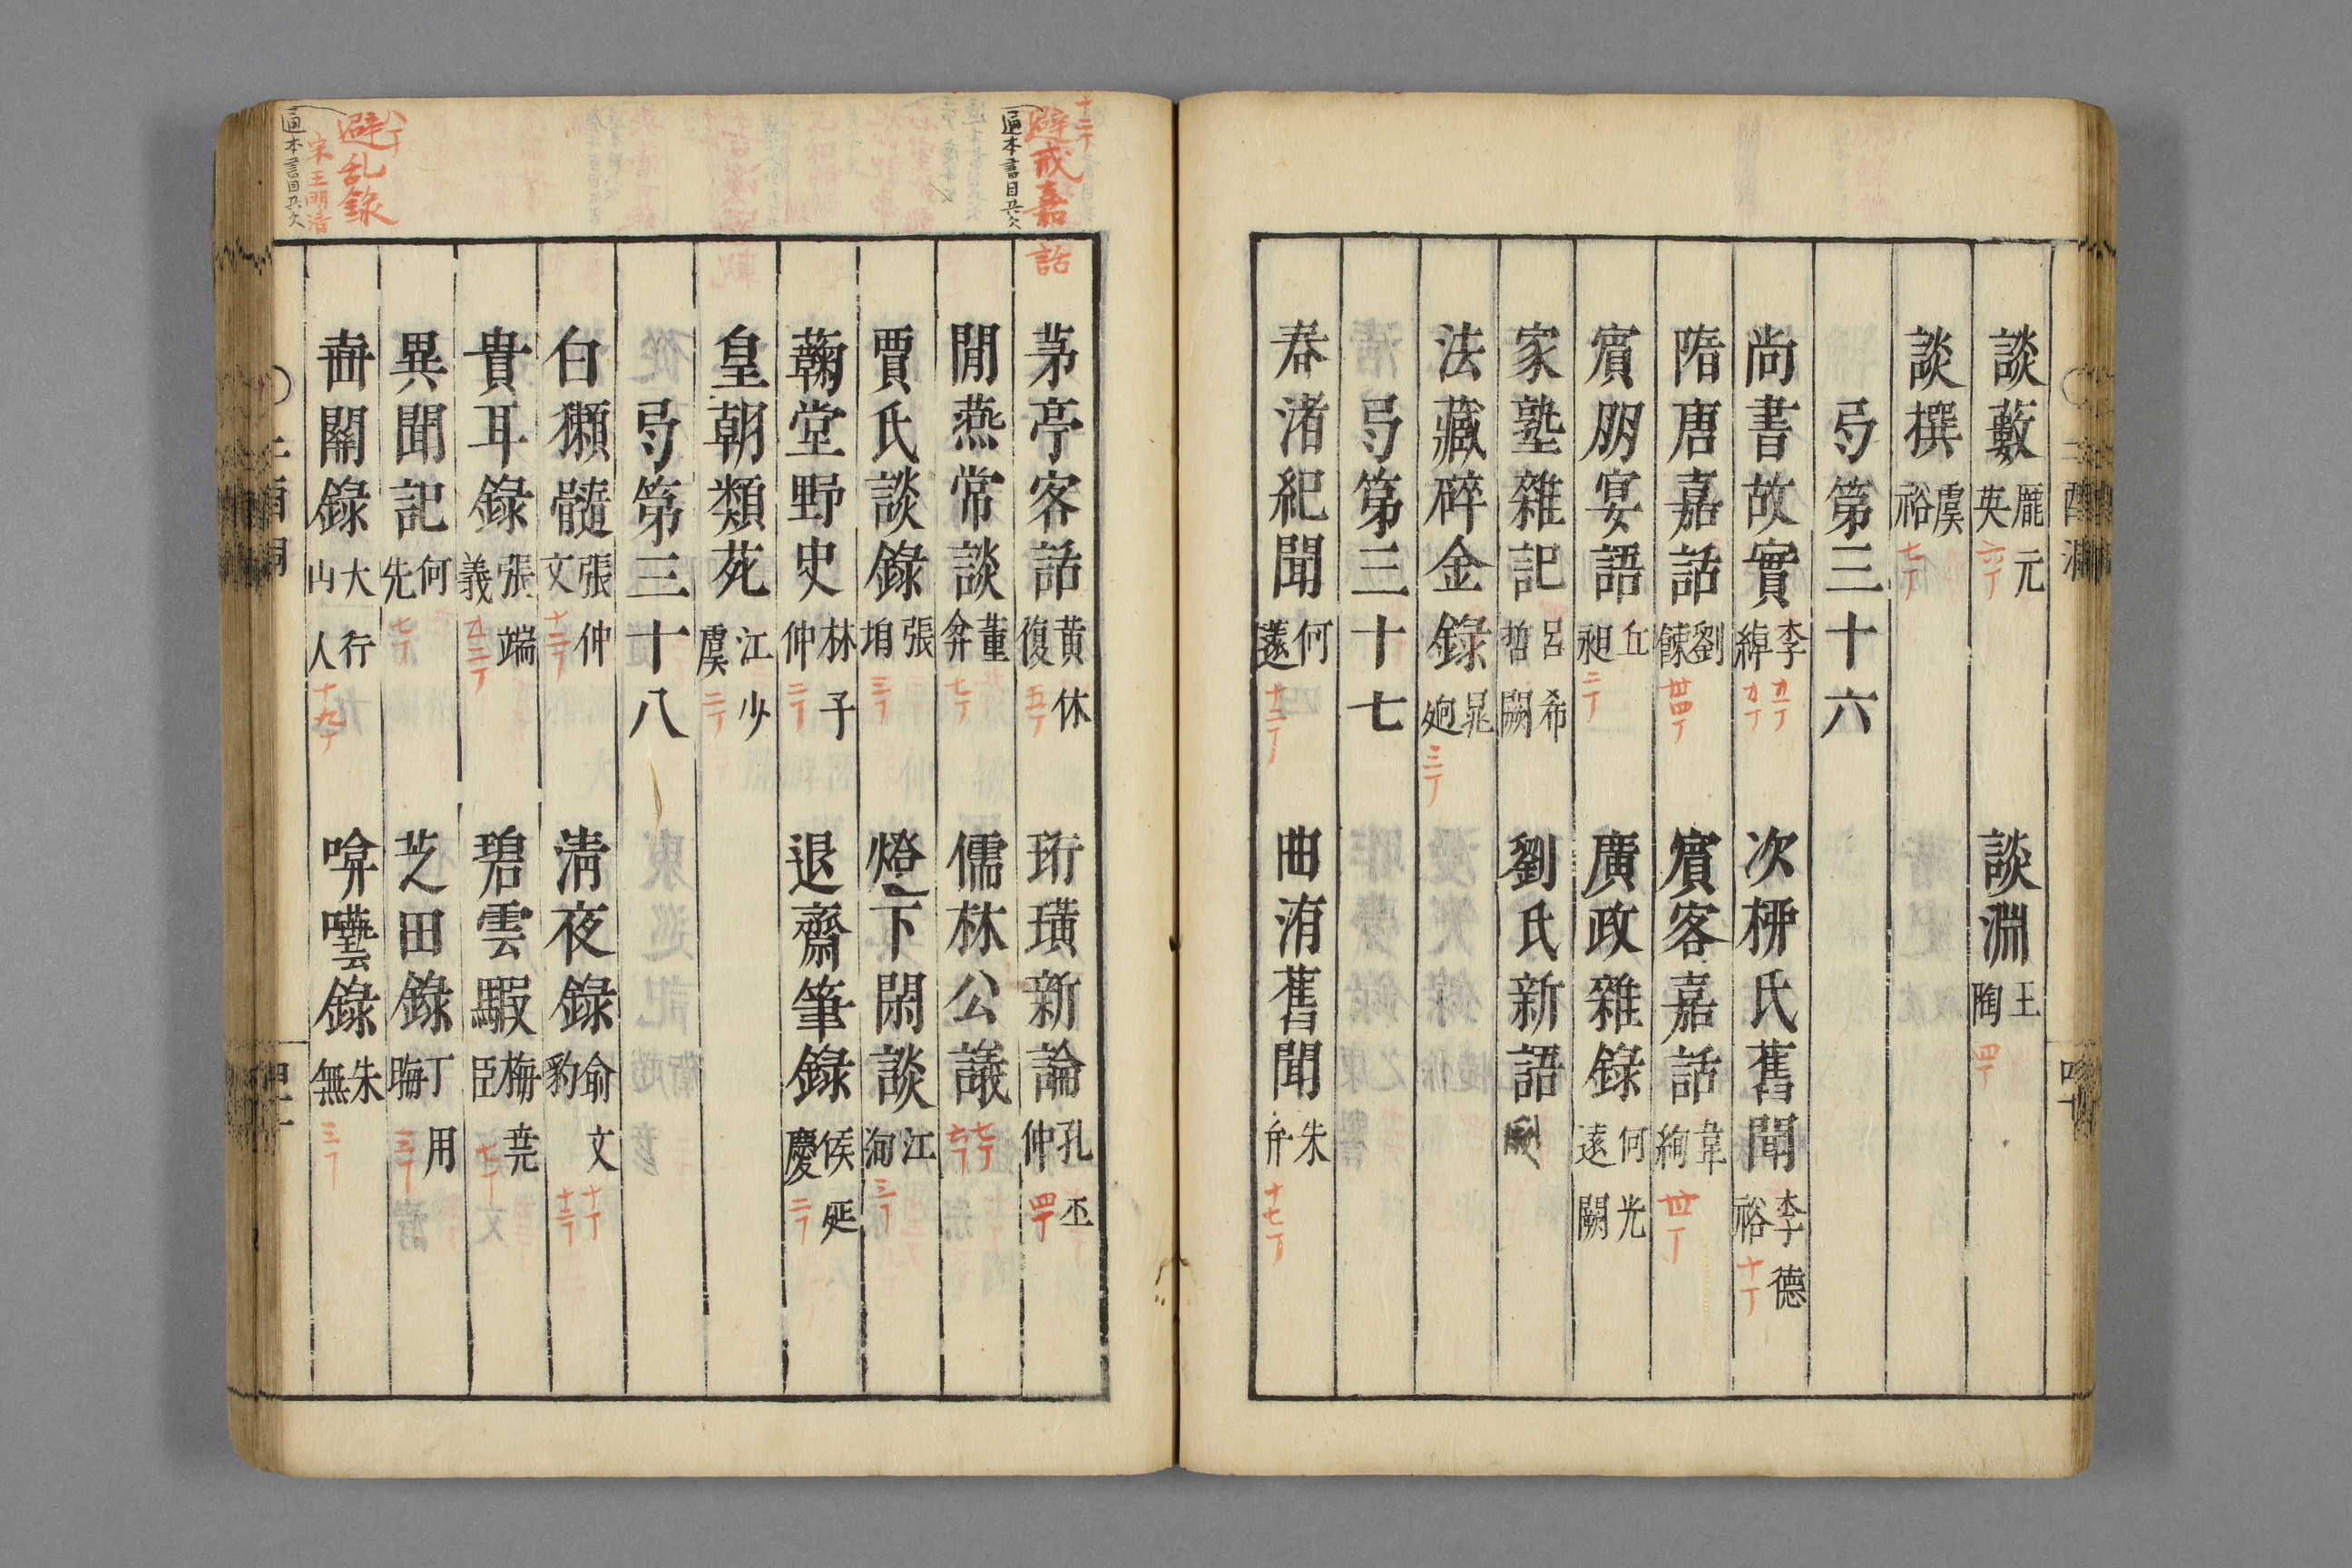 談藪 龐元英 六丁 談淵 王陶 四丁
談撰 虞裕 七丁
弓第三十六
尚書故實 李綽 九丁 次柳氏舊聞 李德裕 十丁
隋唐嘉話 劉餗 廿四丁 賓客嘉話 韋絢 廿一丁
賓朋宴語 丘昶 二丁 廣政雜錄 何光遠 闕
家塾雜記 呂希哲 闕 劉氏新語
法藏碎金錄 晁迥 三丁
弓第三十七
春渚紀聞 何薳 十二丁 曲洧舊聞 朱弁 十七丁
十二丁
避戎嘉話
逼本書目共欠
茅亭客話 黃休復 五丁 珩璜新論 孔仲丕 四丁
閒燕常談 董弅 七丁 儒林公議 七丁
賈氏談錄 張垍 三丁 燈下閑談 江洵 三丁
蘜堂野史 林子仲 二丁 退齋筆錄 侯延慶 二丁
皇朝類苑 江少虞 二丁
弓第三十八
白獺髓 張仲文 十二丁 清夜錄 俞文豹 十丁
貴耳錄 張端義 九二丁 碧雲騢 梅堯臣 七丁
異聞記 何先 七丁 芝田錄 丁用晦 三丁
晝關錄 大行山人 十九丁 啽囈錄 朱無 三丁
八丁
避乱錄
宋王明清
逼本書目共欠